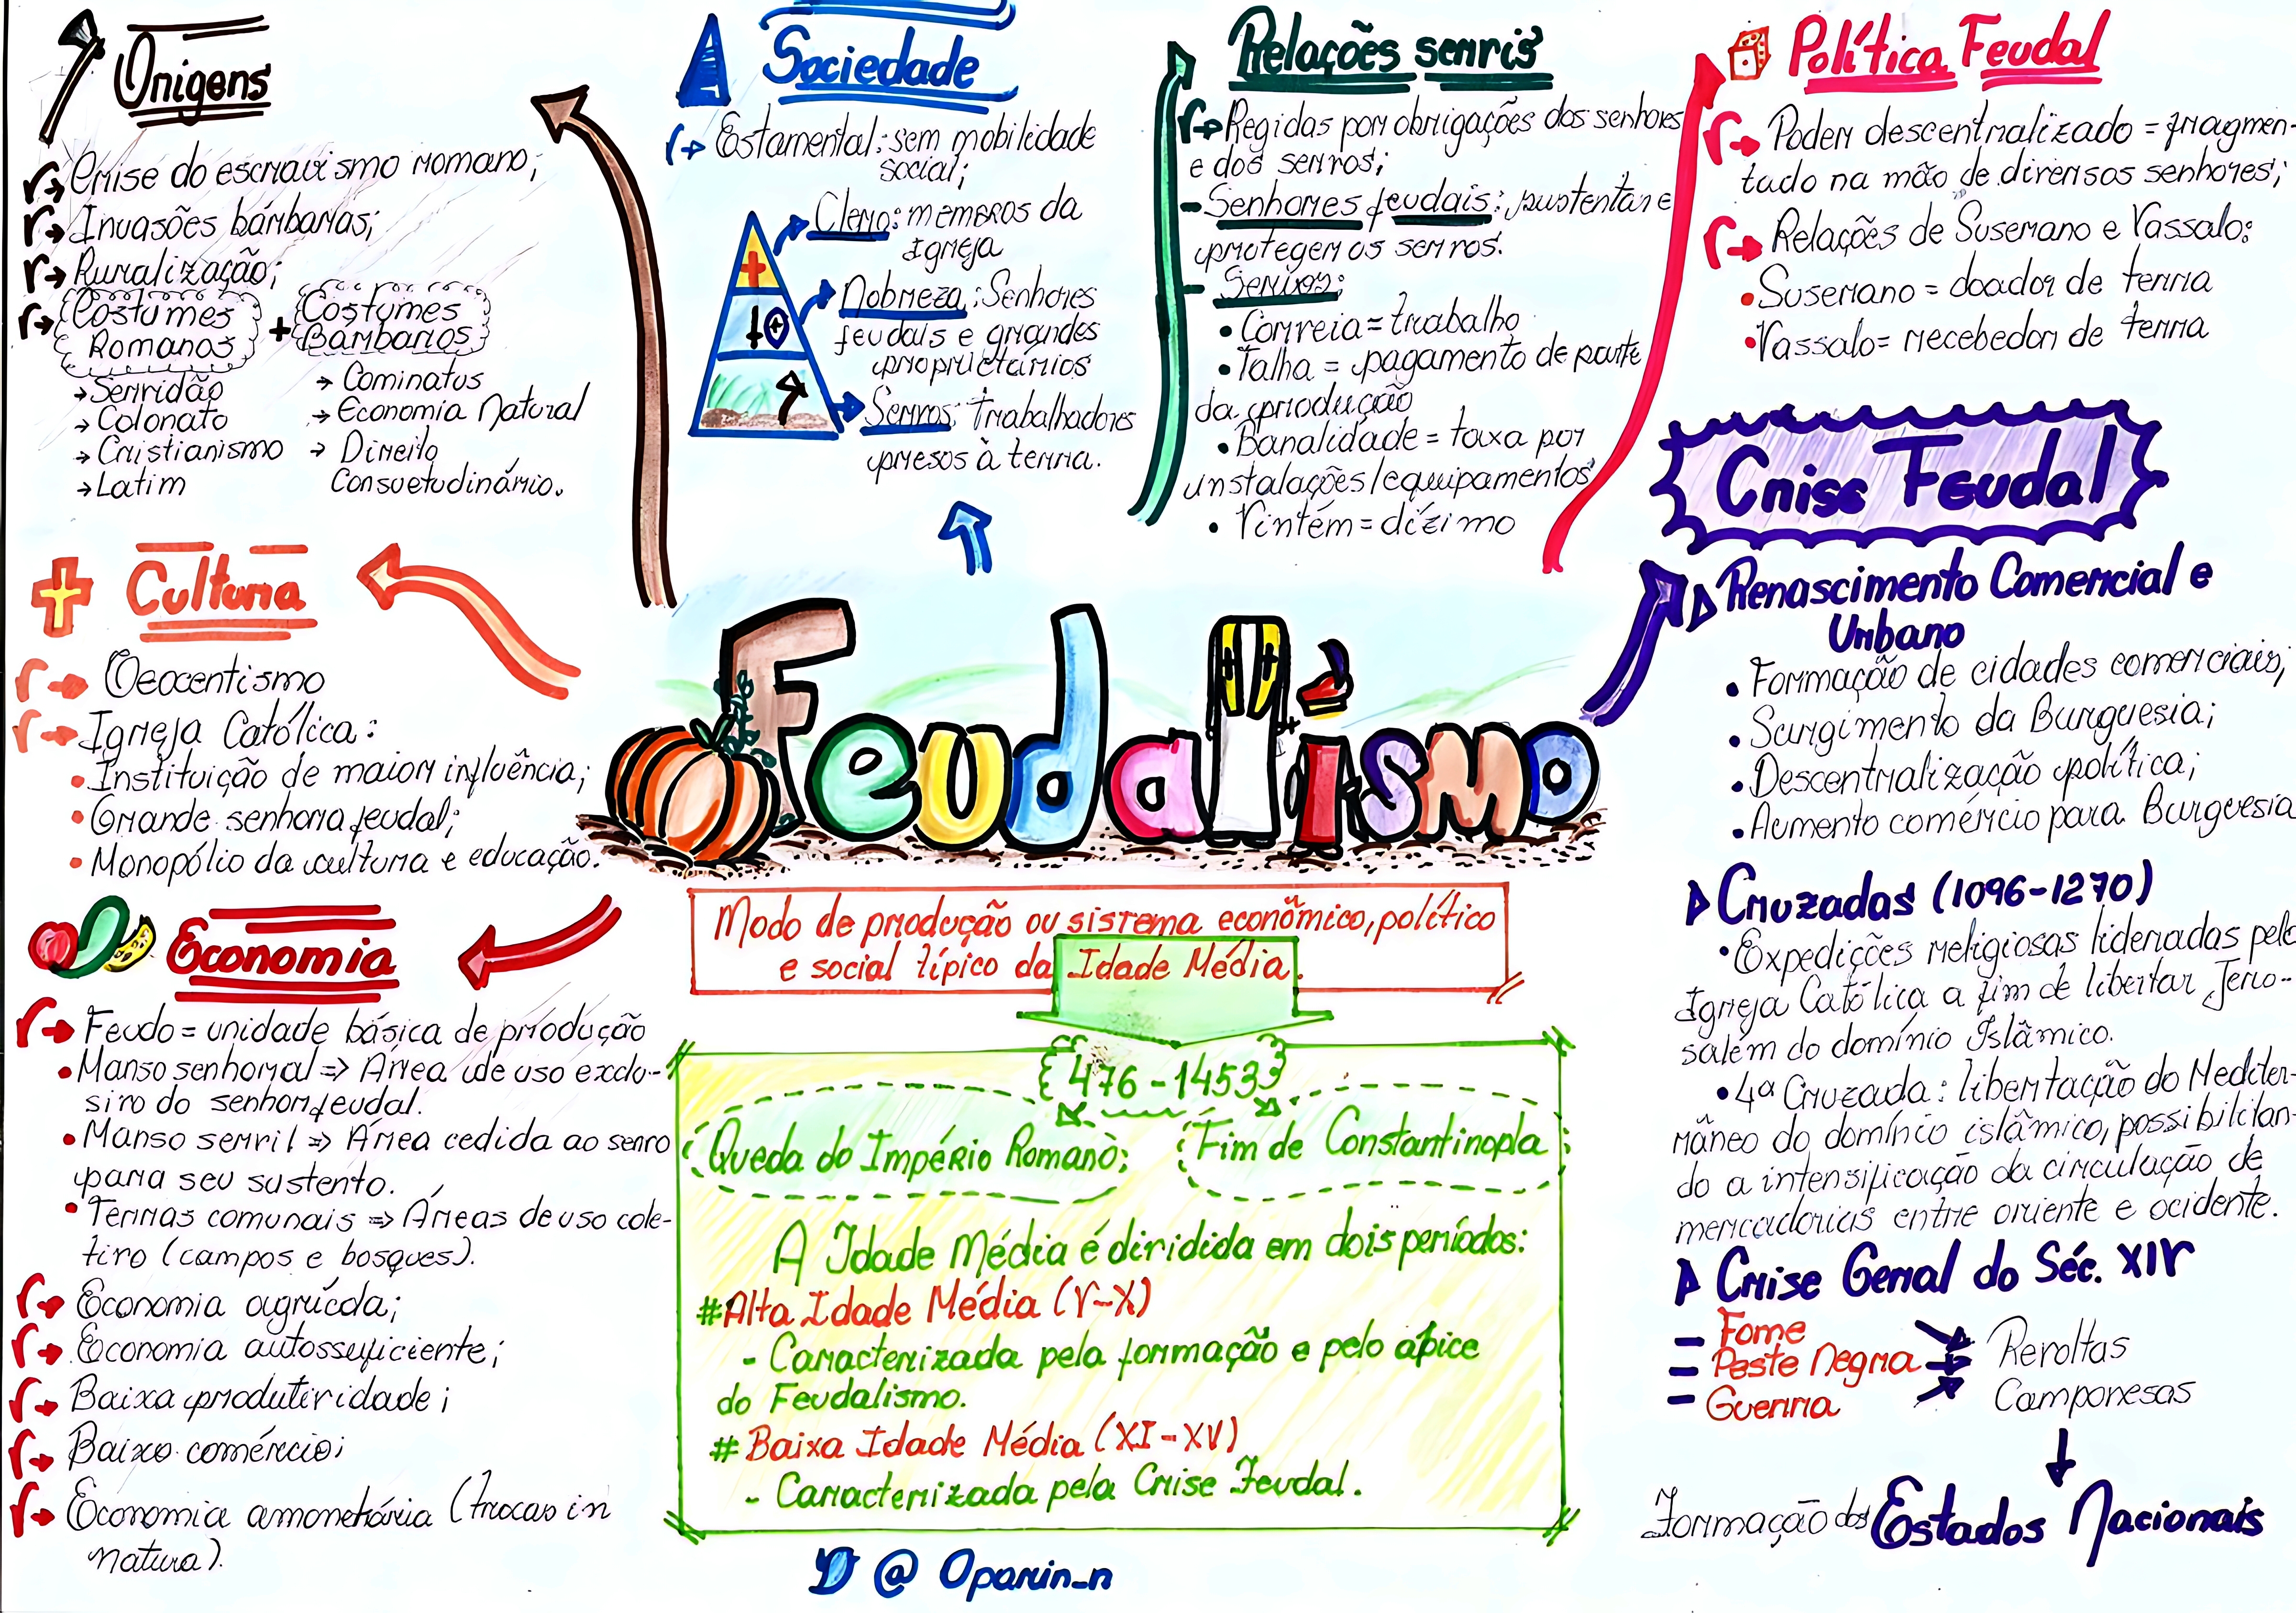 Origens
Crise do escravismo romano;
Invasões bárbaras;
Ruralização;
Costumes Romanos + Costumes Bárbaros
→ Servidão
→ Colonato
→ Cristianismo
→ Latim
→ Cominatus
→ Economia Natural
→ Direito
Consuetudinário.
Sociedade
Estamental: sem mobilidade
social;
Clero: membros da
Igreja
Nobreza: Senhores
feudais e grandes
proprietários
Servos: Trabalhadores
presos à terra.
Relações servis
Regidas por obrigações dos senhores
e dos servos;
- Senhores feudais: sustentar e
proteger os servos.
- Servos:
• Corveia = trabalho
• Talha = pagamento de parte
da produção
• Banalidade = taxa por
instalações/equipamentos
• Vintém = dízimo
Política Feudal
Poder descentralizado = fragmen-
tado na mão de diversos senhores;
Relações de Suserano e Vassalo:
• Suserano = doador de terra
• Vassalo = recebedor de terra
Cultura
Teocentismo
Igreja Católica:
• Instituição de maior influência;
• Grande senhora feudal;
• Monopólio da cultura e educação.
Economia
Feudo = unidade básica de produção
• Manso senhoral => Área de uso exclu-
sivo do senhor feudal.
• Manso servil => Área cedida ao servo
para seu sustento.
• Terras comunais => Áreas de uso cole-
tivo (campos e bosques).
Economia agrícola;
Economia autossuficiente;
Baixa produtividade;
Baixo comércio;
Economia amonetária (trocas in
natura).
Feudalismo
Modo de produção ou sistema econômico, político
e social típico da Idade Média.
476 - 1453
Queda do Império Romano;
Fim de Constantinopla;
A Idade Média é dividida em dois períodos:
# Alta Idade Média (V-X)
- Caracterizada pela formação e pelo ápice
do Feudalismo.
# Baixa Idade Média (XI-XV)
- Caracterizada pela Crise Feudal.
@ Oparin_n
Crise Feudal
Renascimento Comercial e
Urbano
• Formação de cidades comerciais;
• Surgimento da Burguesia;
• Descentralização política;
• Aumento comércio para Burguesia
Cruzadas (1096-1270)
• Expedições religiosas lideradas pela
Igreja Católica a fim de libertar Jeru-
salém do domínio Islâmico.
• 4ª Cruzada: libertação do Mediter-
râneo do domínio islâmico, possibilitan-
do a intensificação da circulação de
mercadorias entre oriente e ocidente.
Crise Geral do Séc. XIV
- Fome
- Peste Negra
- Guerra
Revoltas
Camponesas
Formação dos Estados Nacionais